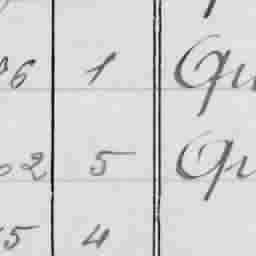 6 1 Qu
02 5 Qu
5 4